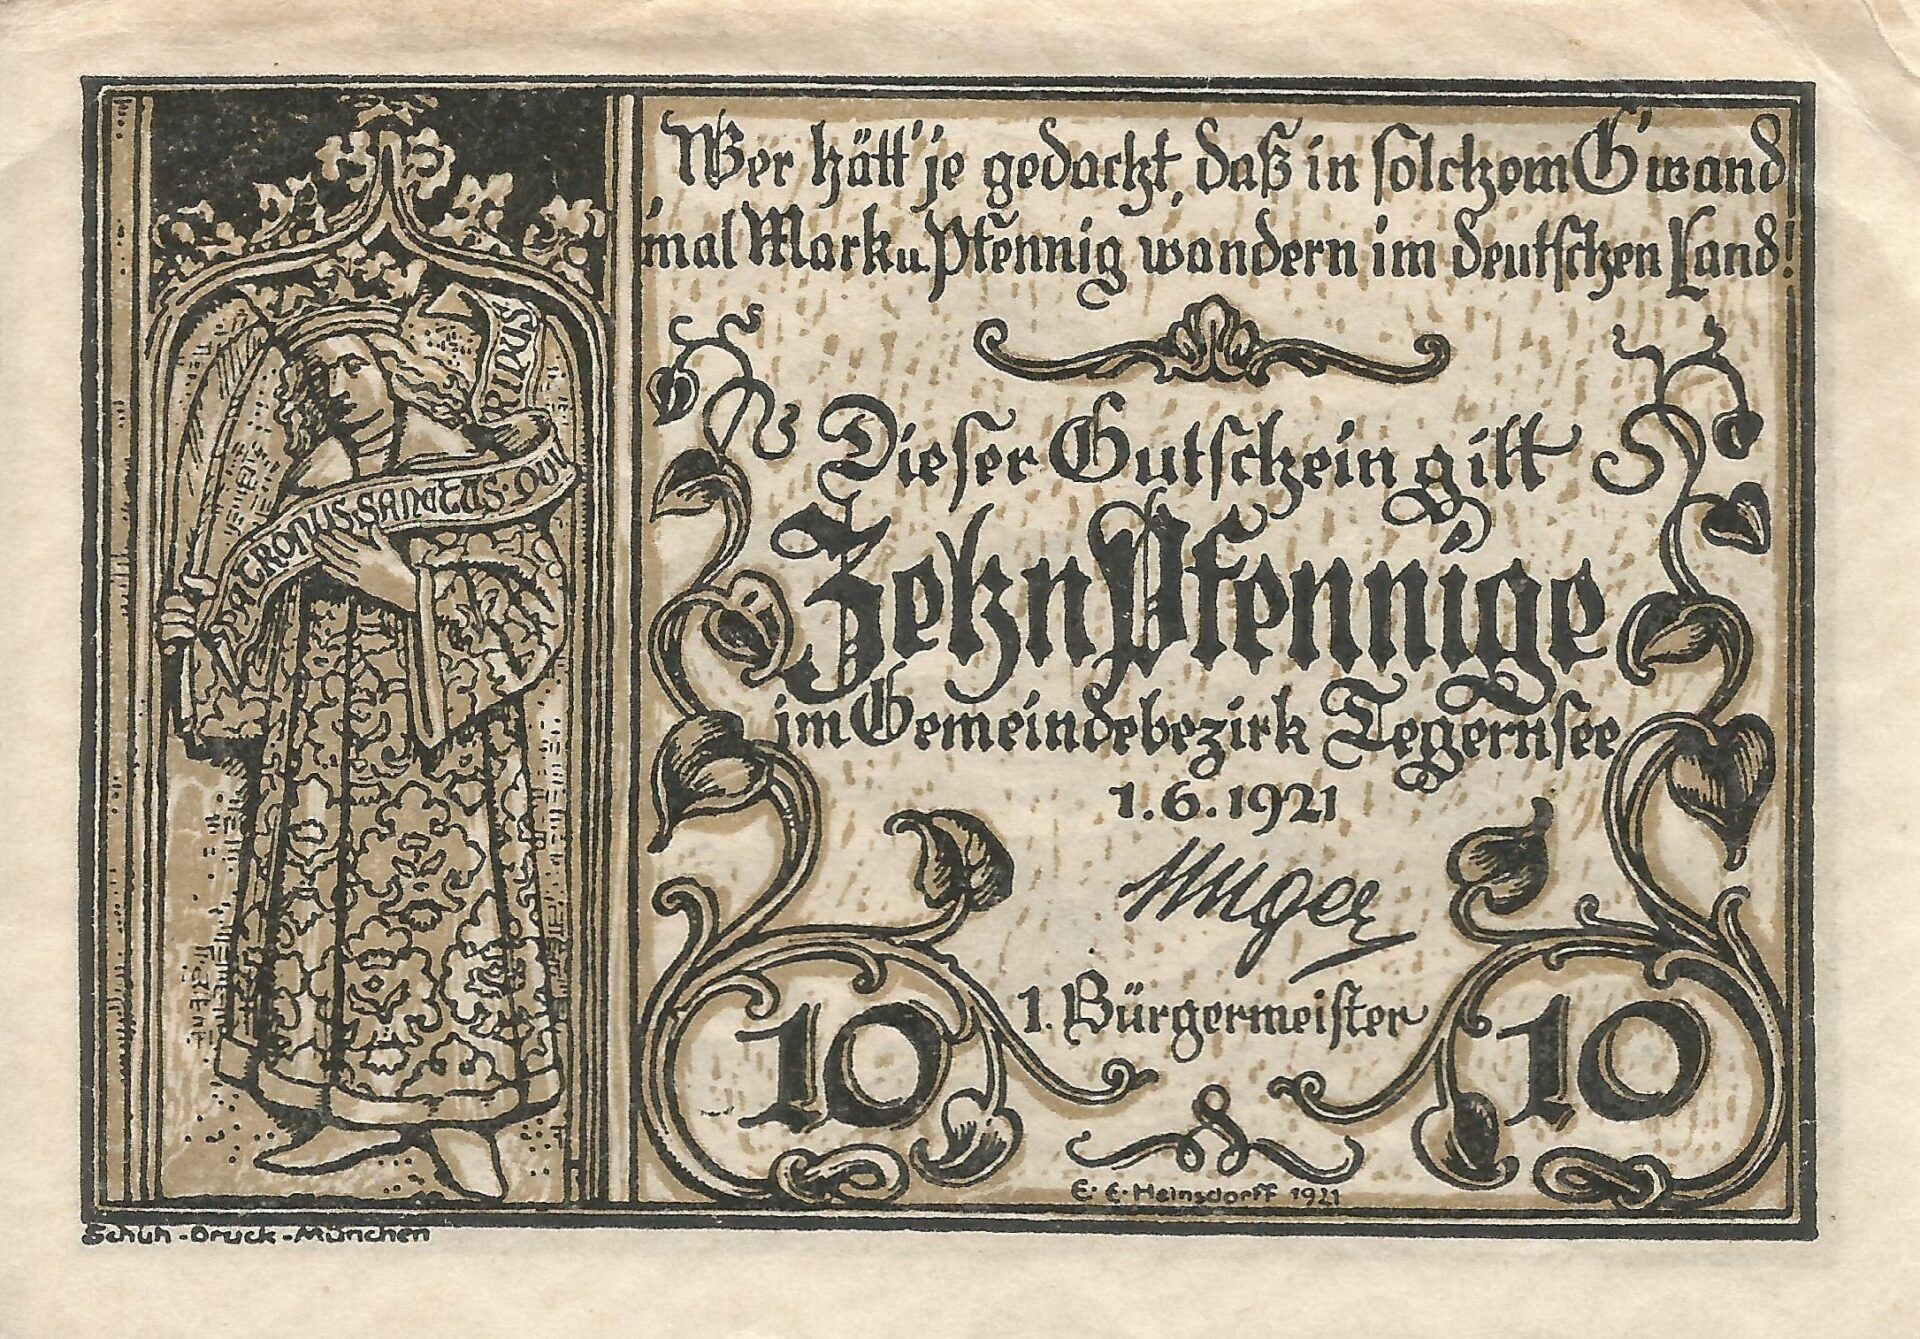 Wer hätt' je gedacht, daß in solchem G'wand
'mal Mark u. Pfennig wandern im deutschen Land!
PATRONUS·SANCTUS·QUI
RIPUS
Dieser Gutschein gilt
Zehn Pfennige
im Gemeindebezirk Tegernsee
1.6.1921
1. Bürgermeister
10 10
E. E. Heinsdorff 1921
Schuh-Druck-München